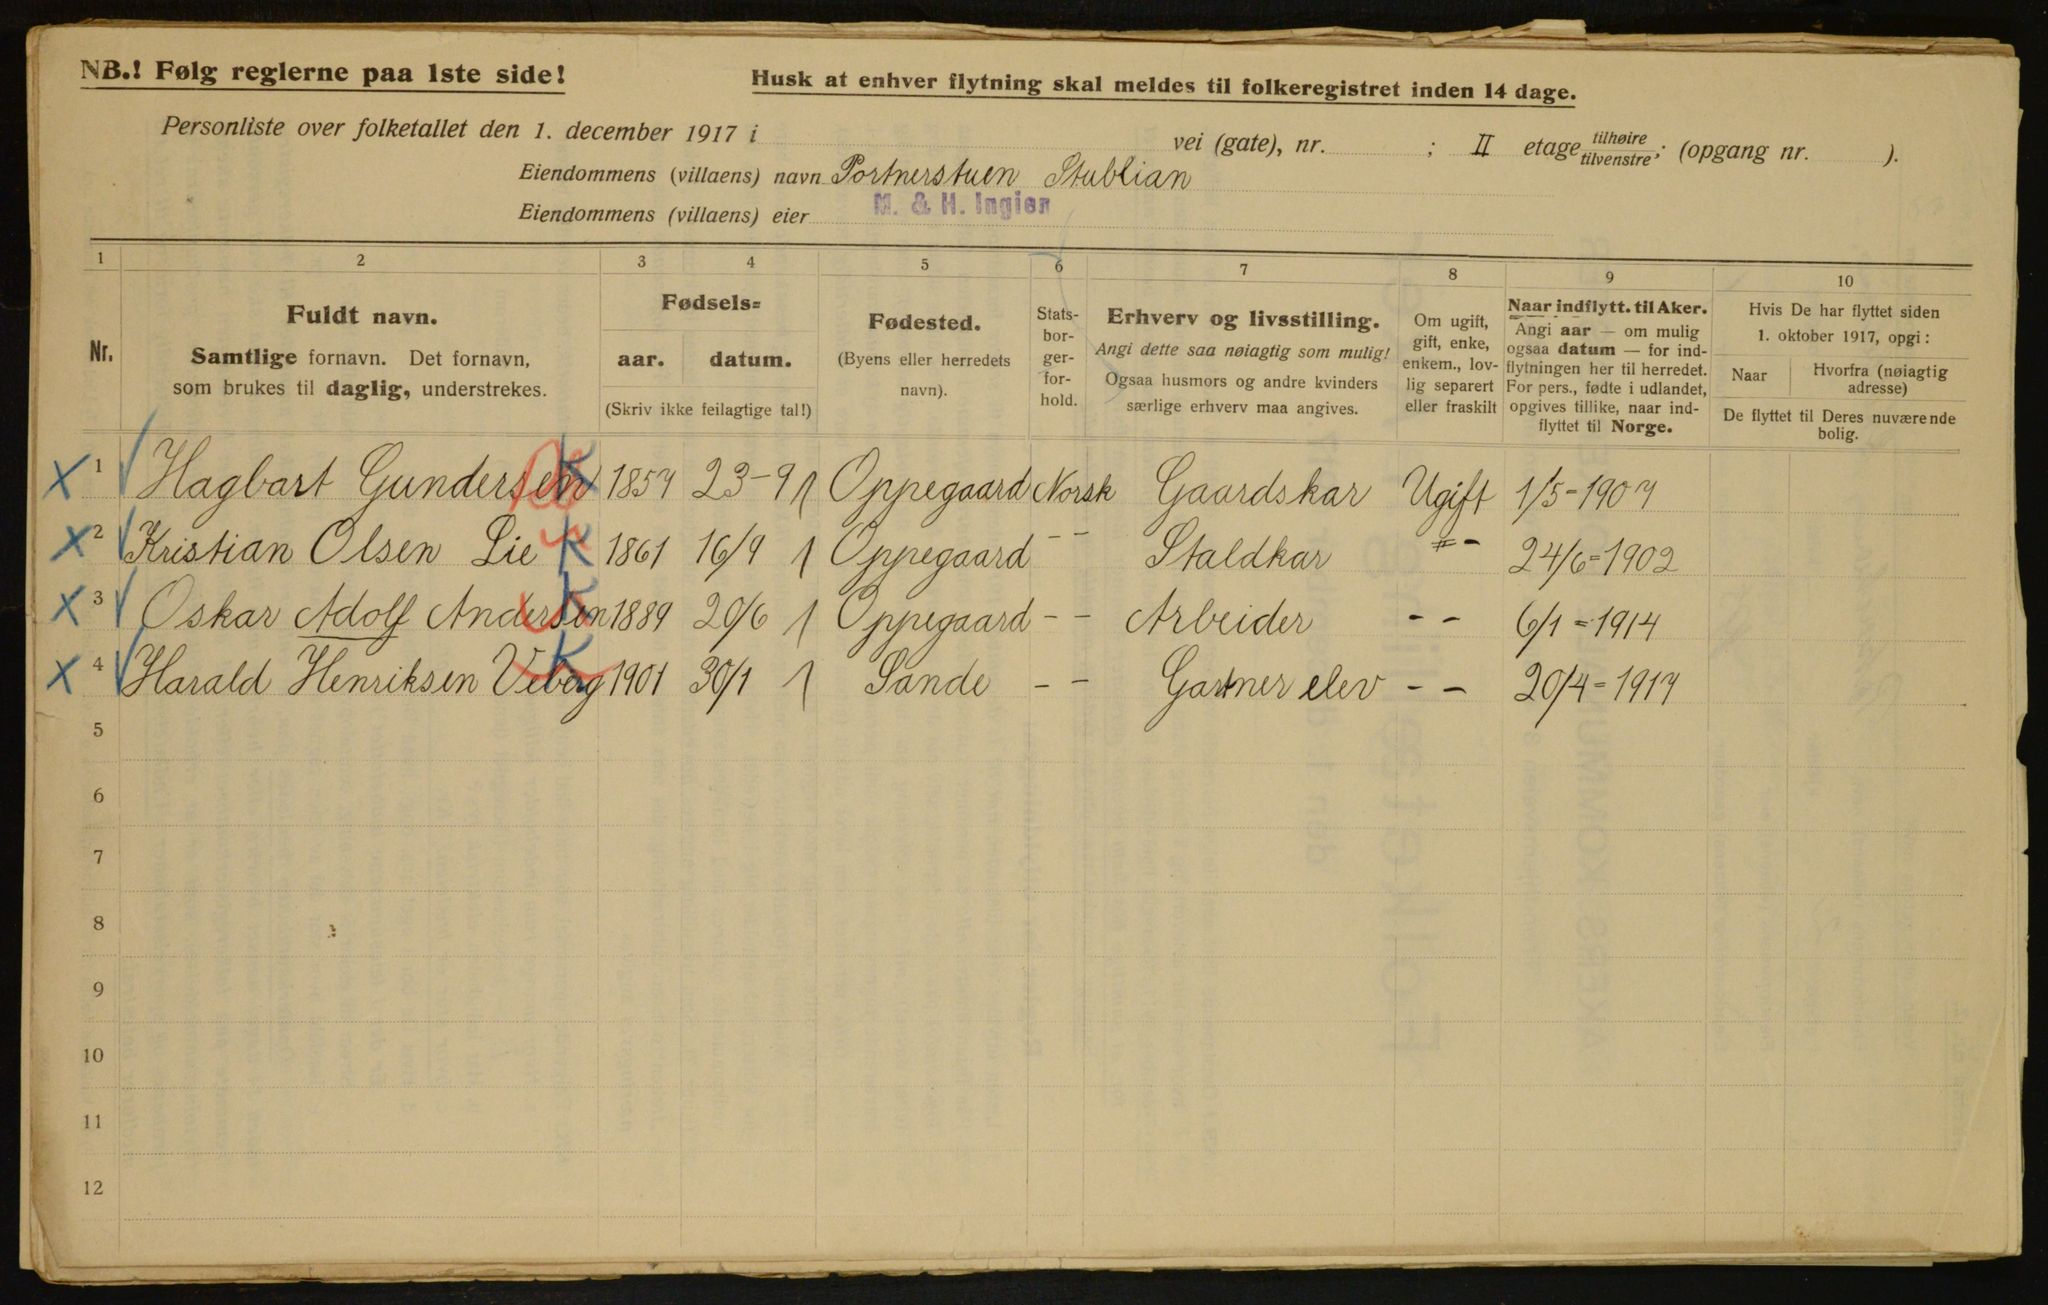 NB.! Følg reglerne paa 1ste side!
Husk at enhver flytning skal meldes til folkeregistret inden 14 dage.
Personliste over folketallet den 1. december 1917 i vei (gate), nr. ; II etage tilhøire tilvenstre; (opgang nr. ).
Eiendommens (villaens) navn Portnerstuen Stublian
Eiendommens (villaens) eier M. & H. Ingier
1 2 3 4 5 6 7 8 9 10
Nr.
Fuldt navn.
Samtlige fornavn. Det fornavn,
som brukes til daglig, understrekes.
Fødsels=
aar. datum.
(Skriv ikke feilagtige tal!)
Fødested.
(Byens eller herredets
navn).
Stats-
bor-
ger-
for-
hold.
Erhverv og livsstilling.
Angi dette saa nøiagtig som mulig!
Ogsaa husmors og andre kvinders
særlige erhverv maa angives.
Om ugift,
gift, enke,
enkem., lov-
lig separert
eller fraskilt
Naar indflytt. til Aker.
Angi aar — om mulig
ogsaa datum — for ind-
flytningen her til herredet.
For pers., fødte i udlandet,
opgives tillike, naar ind-
flyttet til Norge.
Hvis De har flyttet siden
1. oktober 1917, opgi:
Naar
Hvorfra (nøiagtig
adresse)
De flyttet til Deres nuværende
bolig.
X 1 Hagbart Gundersen K 1857 23-9 1 Oppegaard Norsk Gaardskar Ugift 1/5-1907
X 2 Kristian Olsen Lie K 1861 16/9 1 Oppegaard - - Staldkar - - 24/6-1902
X 3 Oskar Adolf Andersen K 1889 20/6 1 Oppegaard - - Arbeider - - 6/1-1914
X 4 Harald Henriksen Veberg K 1901 30/1 1 Sande - - Gartner elev - - 20/4-1917
5
6
7
8
9
10
11
12